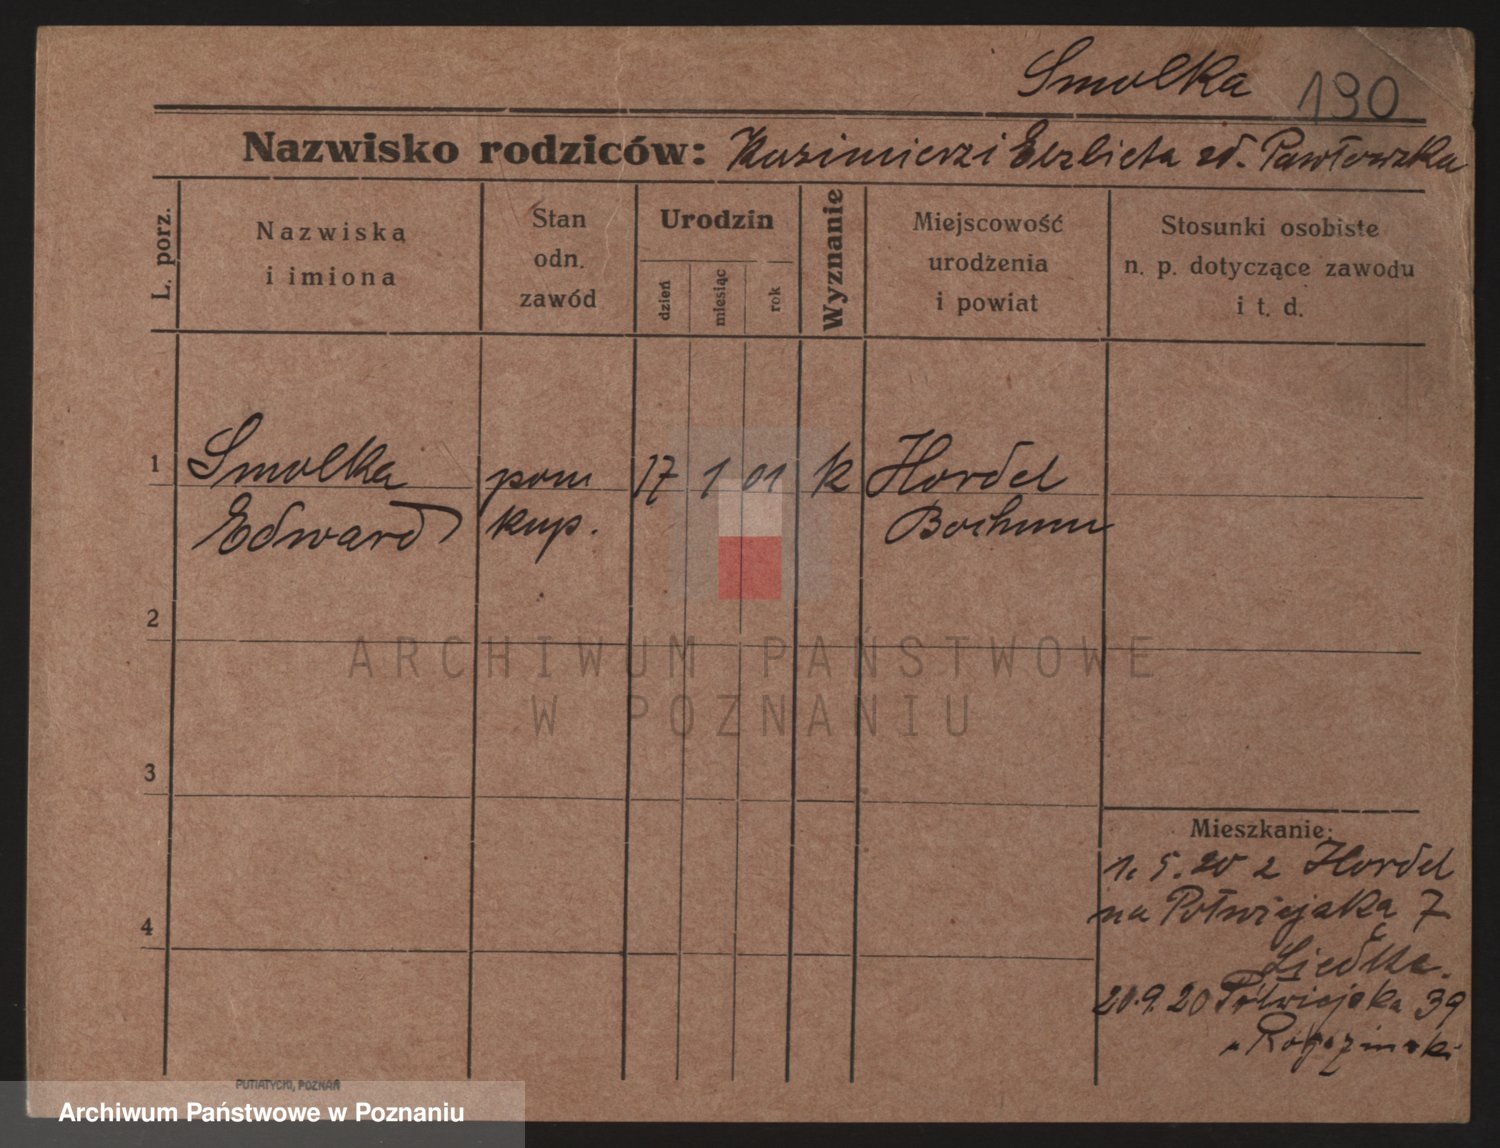 Smolka 190
Nazwisko rodziców: Kazimierz i Elzbieta zd. Pawłowska
L. porz.
Nazwiska
i imiona
Stan
odn.
zawód
Urodzin
dzień
miesiąc
rok
Wyznanie
Miejscowość
urodzenia
i powiat
Stosunki osobiste
n. p. dotyczące zawodu
i t. d.
1 Smolka pom 17 1 01 k Hordel
Edward kup. Bochum
2
ARCHIWUM PAŃSTWOWE
W POZNANIU
3
Mieszkanie:
1. 5. 20 z Hordel
na Półwiejska 7
4
20.9.20 Półwiejska 39
PUTIATYCKI, POZNAŃ
Archiwum Państwowe w Poznaniu